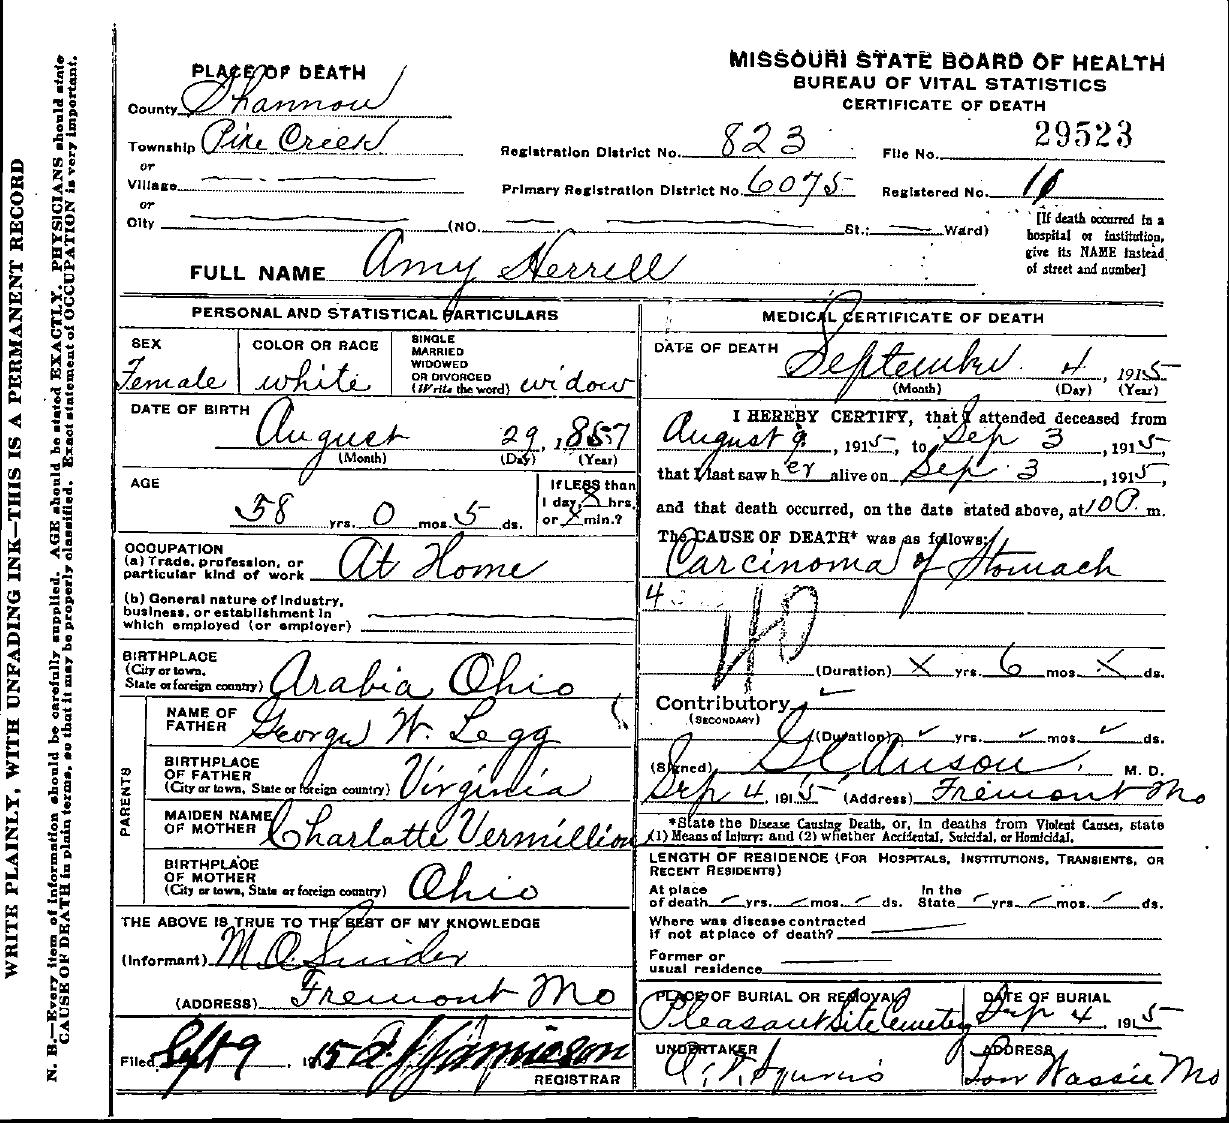 WRITE PLAINLY, WITH UNFADING INK—THIS IS A PERMANENT RECORD
N. B.—Every item of information should be carefully supplied. AGE should be stated EXACTLY. PHYSICIANS should state
CAUSE OF DEATH in plain terms, so that it may be properly classified. Exact statement of OCCUPATION is very important.
MISSOURI STATE BOARD OF HEALTH
BUREAU OF VITAL STATISTICS
CERTIFICATE OF DEATH
PLACE OF DEATH
County Shannon
Township Pine Creek
or
Village
or
City (NO. St.; Ward)
Registration District No. 823
File No. 29523
Primary Registration District No. 6075
Registered No. 11
[If death occurred in a
hospital or institution,
give its NAME instead
of street and number]
FULL NAME Amy Herrell
PERSONAL AND STATISTICAL PARTICULARS
SEX
Female
COLOR OR RACE
white
SINGLE
MARRIED
WIDOWED
OR DIVORCED
(Write the word) widow
DATE OF BIRTH
August 29, 1857
(Month) (Day) (Year)
AGE
58 yrs. 0 mos. 5 ds.
If LESS than
1 day, X hrs.
or X min.?
OCCUPATION
(a) Trade, profession, or
particular kind of work At Home
(b) General nature of industry,
business, or establishment in
which employed (or employer)
BIRTHPLACE
(City or town,
State or foreign country) Arabia Ohio
PARENTS
NAME OF
FATHER George W. Legg
BIRTHPLACE
OF FATHER
(City or town, State or foreign country) Virginia
MAIDEN NAME
OF MOTHER Charlatte Vermillion
BIRTHPLACE
OF MOTHER
(City or town, State or foreign country) Ohio
THE ABOVE IS TRUE TO THE BEST OF MY KNOWLEDGE
(Informant) M O Snider
(ADDRESS) Fremont Mo
Filed Sept 9, 1915 Jamieson
REGISTRAR
MEDICAL CERTIFICATE OF DEATH
DATE OF DEATH
September 4, 1915
(Month) (Day) (Year)
I HEREBY CERTIFY, that I attended deceased from
August 9, 1915, to Sep 3, 1915,
that I last saw her alive on Sep 3, 1915,
and that death occurred, on the date stated above, at 10 P. m.
The CAUSE OF DEATH* was as follows:
Carcinoma of Stomach
4
40
(Duration) X yrs. 6 mos. X ds.
Contributory
(SECONDARY)
(Duration) yrs. mos. ds.
(Signed) M. D.
Sep 4, 1915 (Address) Fremont Mo
*State the Disease Causing Death, or, in deaths from Violent Causes, state
(1) Means of Injury; and (2) whether Accidental, Suicidal, or Homicidal.
LENGTH OF RESIDENCE (FOR HOSPITALS, INSTITUTIONS, TRANSIENTS, OR
RECENT RESIDENTS)
At place
of death yrs. mos. ds.
In the
State yrs. mos. ds.
Where was disease contracted
If not at place of death?
Former or
usual residence
PLACE OF BURIAL OR REMOVAL
Pleasant Site Cemetery
DATE OF BURIAL
Sep 4, 1915
UNDERTAKER
ADDRESS
Low Wassie Mo